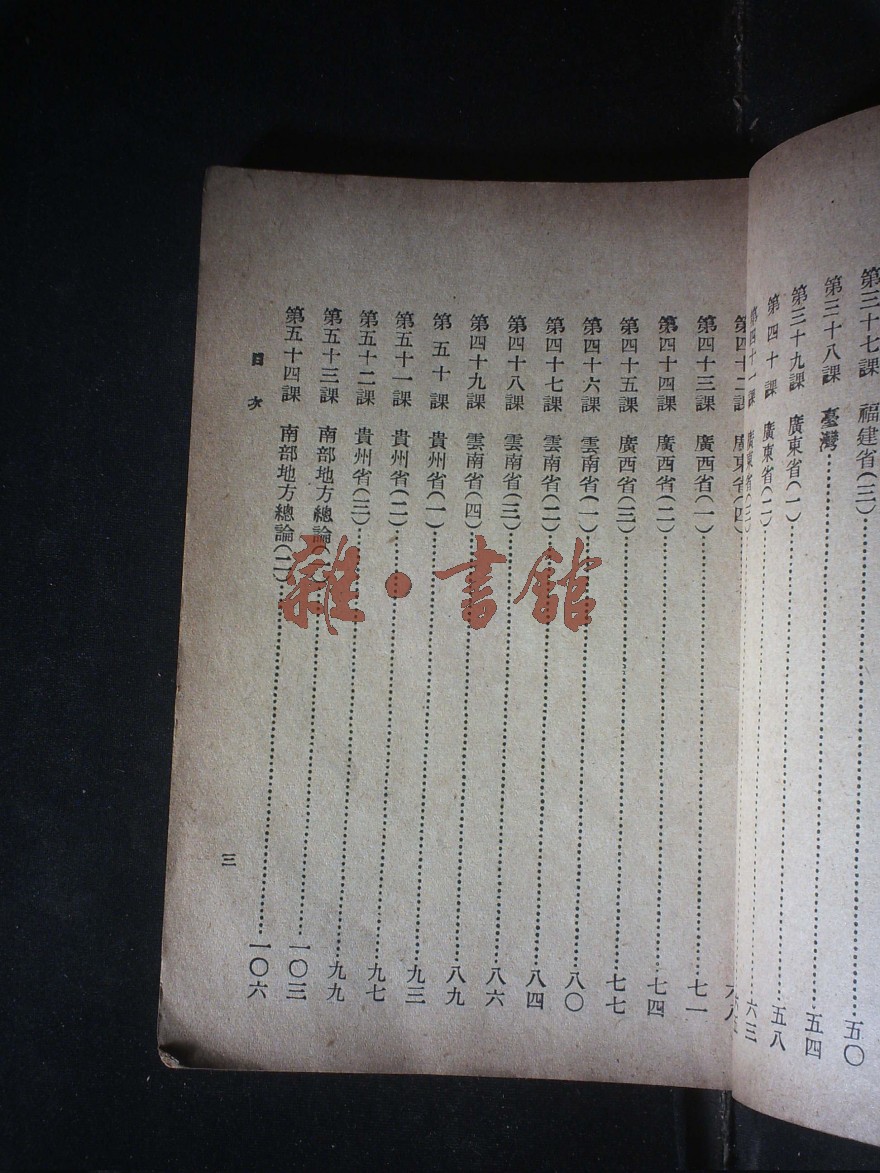 第三十七課 福建省(三)……五〇
第三十八課 臺灣……五四
第三十九課 廣東省(一)……五八
第四十課 廣東省(二)……六三
第四十一課 廣東省(三)……
第四十二課 廣東省(四)……
第四十三課 廣西省(一)……七一
第四十四課 廣西省(二)……七四
第四十五課 廣西省(三)……七七
第四十六課 雲南省(一)……八〇
第四十七課 雲南省(二)……八四
第四十八課 雲南省(三)……八六
第四十九課 雲南省(四)……八九
第五十課 貴州省(一)……九三
第五十一課 貴州省(二)……九七
第五十二課 貴州省(三)……九九
第五十三課 南部地方總論(一)……一〇三
第五十四課 南部地方總論(二)……一〇六
目次
三
雜·書館